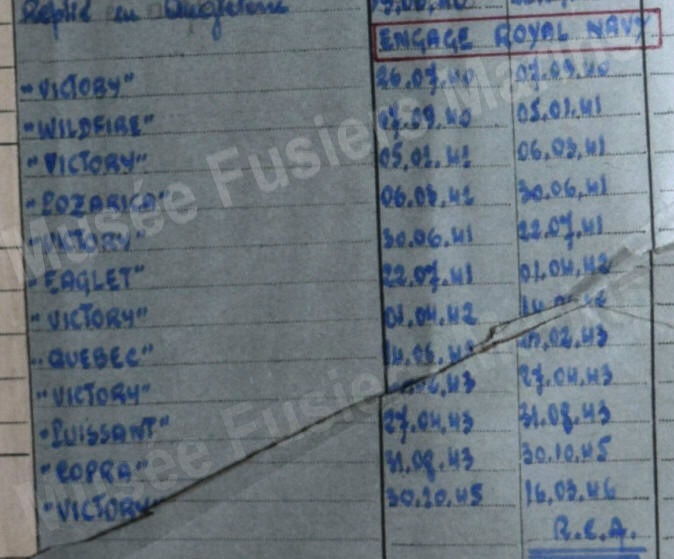 Replié en Angleterre
ENGAGE ROYAL NAVY
"VICTORY" 26.07.40 07.09.40
"WILDFIRE" 07.09.40 05.01.41
"VICTORY" 05.01.41 06.03.41
"POZARICA" 06.03.41 30.06.41
"VICTORY" 30.06.41 22.07.41
"EAGLET" 22.07.41 01.04.42
"VICTORY" 01.04.42
"QUEBEC" .02.43
"VICTORY" 27.04.43
"PUISSANT" 27.04.43 31.08.43
"COPRA" 31.08.43 30.10.45
"VICTORY" 30.10.45 16.03.46
R.C.A.
Musée Fusiliers Marins
Musée Fusiliers Marins